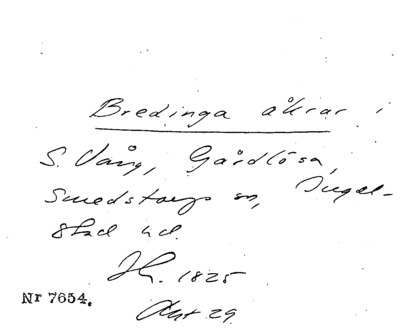 Bredinga åkrar i
S. Vång, Gårdlösa,
Smedstorps sn, Ingel-
stad hd.
Jh. 1825
Akt 29
Nr 7654.